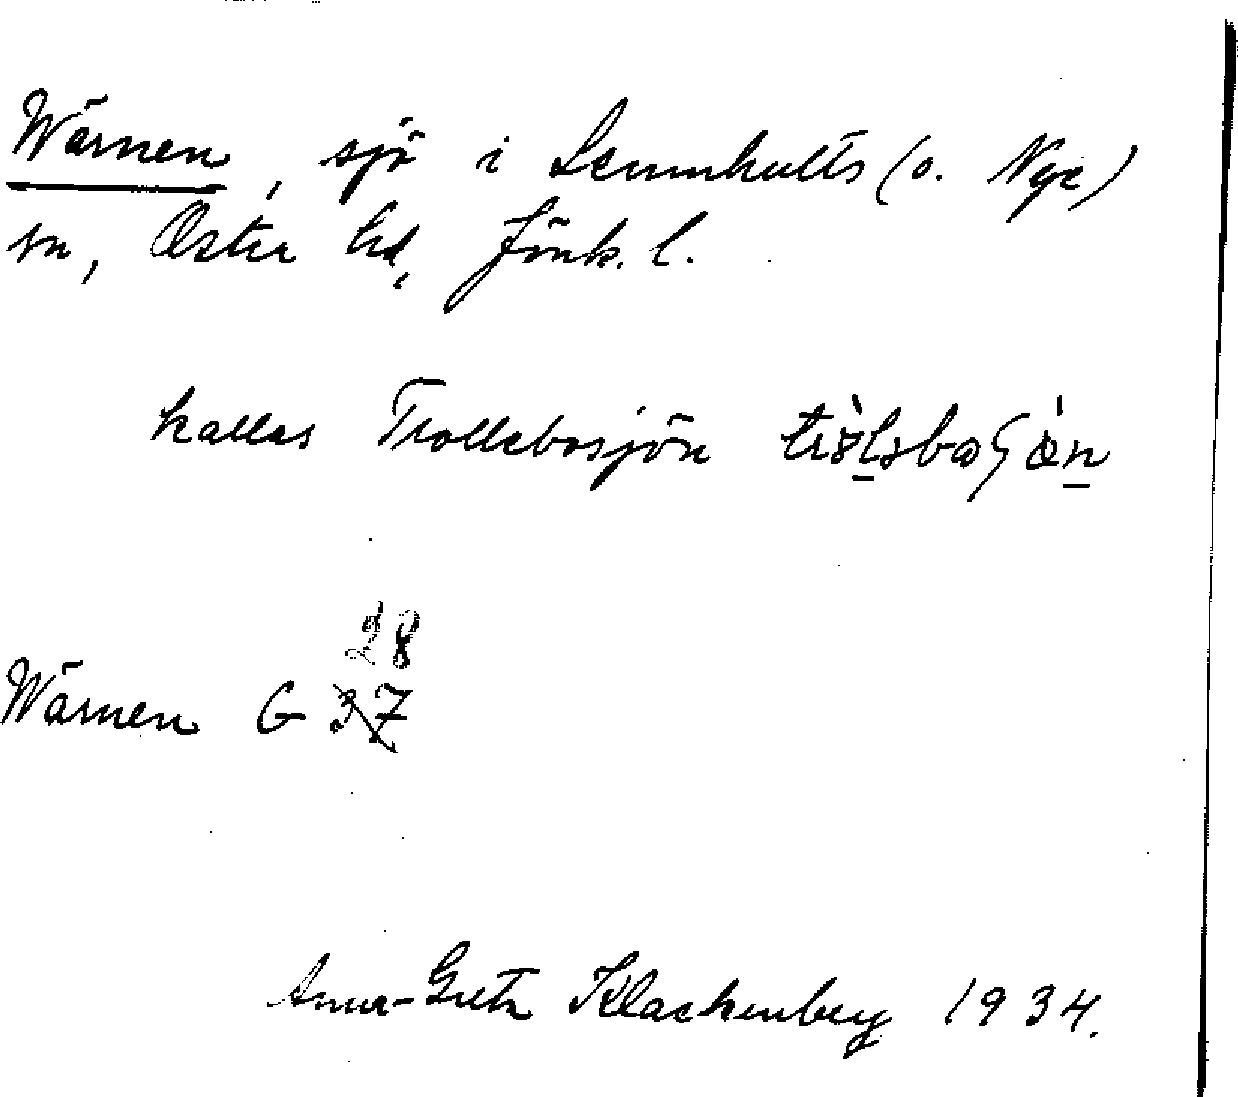 Wärnen, sjö i Lemnhults (o. Nye)
sn, Öster hd, Jönk. l.
kallas Trollebosjön
28
Wärnen G 37
Anna-Greta Klackenberg 1934.